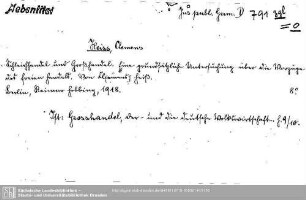 Nebentitel
Jus publ. Germ. D 791
= 0
Heiss, Clemens
Schleichhandel und Großhandel. Eine grundsätzliche Untersuchung über die Vorzüge
des freien Handels. Von Clemens Heiß.
Berlin, Reimar Hobbing, 1918. 8°
Ist: Grosshandel, Der - und die deutsche Volkswirtschaft. H. 9/10.
Sächsische Landesbibliothek -
Staats- und Universitätsbibliothek Dresden